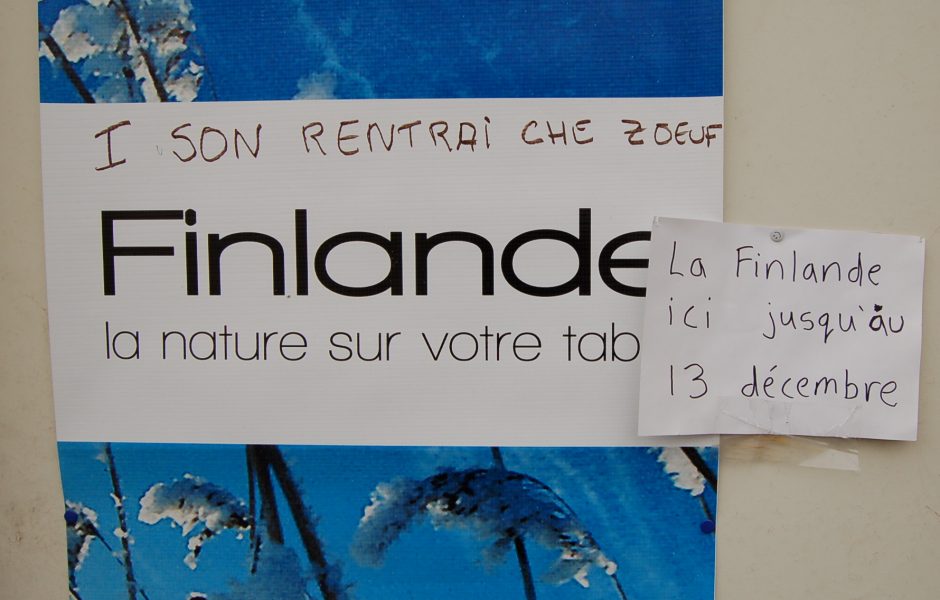 I SON RENTRAi CHE ZOEUF
Finlande
la nature sur votre tab
La Finlande
ici jusqu'au
13 décembre